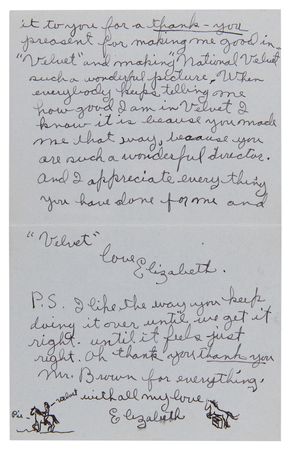 it to you for a thank-you
preasent for making me good in-
"Velvet" and making "National Velvet"
such a wonderful picture. When
everybody keeps telling me
how good I am in Velvet I
know it is because you made
me that way, because you
are such a wonderful director.
And I appreciate everything
you have done for me and
"Velvet"
love
Elizabeth.
P.S. I like the way you keep
doing it over until we get it
right. until it feels just
right. Oh thank you thank you
Mr. Brown for everything,
Pie velvet with all my love
Elizabeth